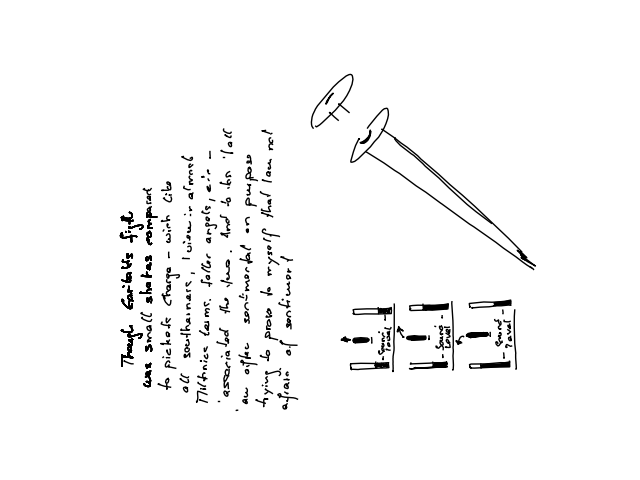 Though Garibaldis fight
was small shakes compared
to picketts Charge – which like
all southerners, I view in almost
Miltonic terms, fallen angels, etc –
associated the two. And to tell all
am often sentimental on purpose
trying to prove to myself that I am not
afraid of sentiment
- Sound Level -
- Sound Level -
- Sound Level -